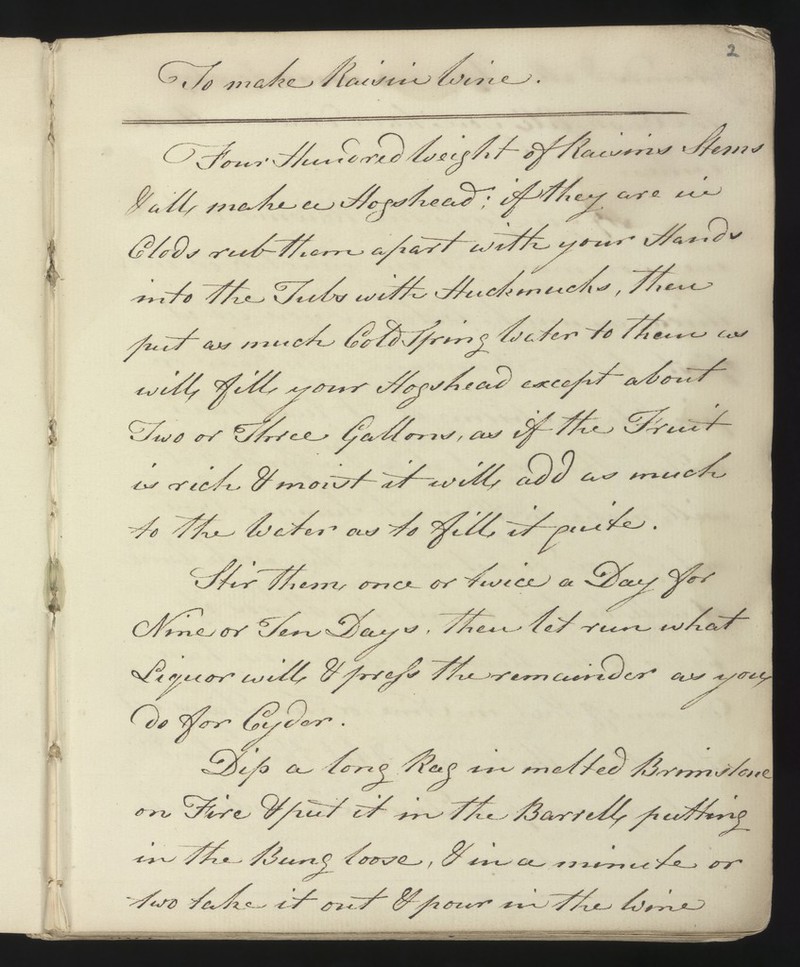 2
To make Raisin Wine.
Four Hundred Weight of Raisins Stems
& all, make a Hogshead; if they are in
Clods rub them apart with your Hands
into the Tubs with Huckmucks, then
put as much Cold Spring Water to them as
will fill your Hogshead except about
Two or Three Gallons, as if the Fruit
is rich & moist it will add as much
to the Water as to fill it quite.
Stir them once or twice a Day for
Nine or Ten Days, then let run what
Liquor will & press the remainder as you
do for Cyder.
Dip a long Rag in melted Brimstone
on Fire & put it in the Barrell, putting
in the Bung loose, & in a minute or
two take it out & pour in the Wine